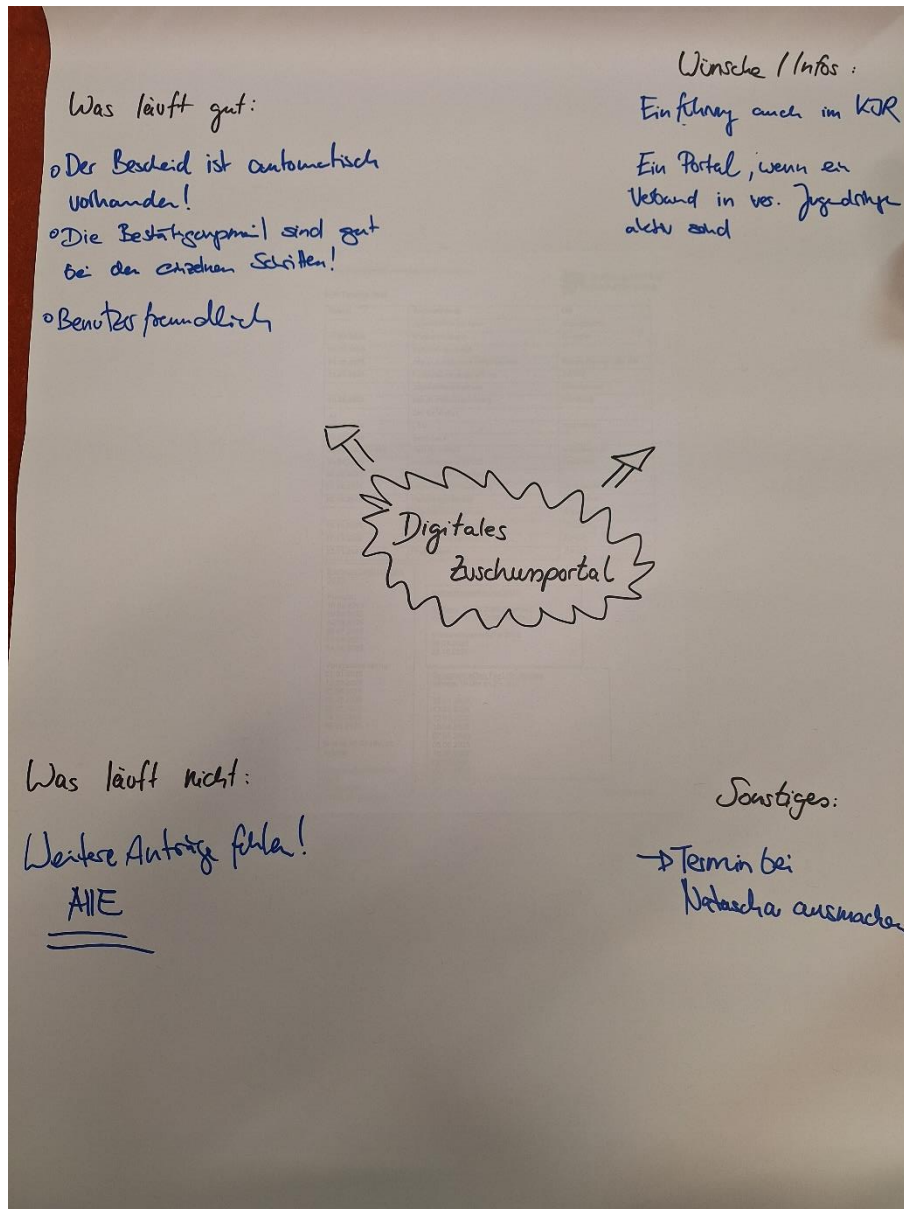 Was läuft gut:
o Der Bescheid ist automatisch
vorhanden!
o Die Bestätigungsmail sind gut
bei den einzelnen Schritten!
o Benutzerfreundlich
Wünsche / Infos:
Einführung auch im KJR
Ein Portal, wenn ein
Verband in ves. Jugendringe
aktiv sind
Digitales
Zuschussportal
Was läuft nicht:
Weitere Anträge fehlen!
AllE
Sonstiges:
→ Termin bei
Natascha ausmachen